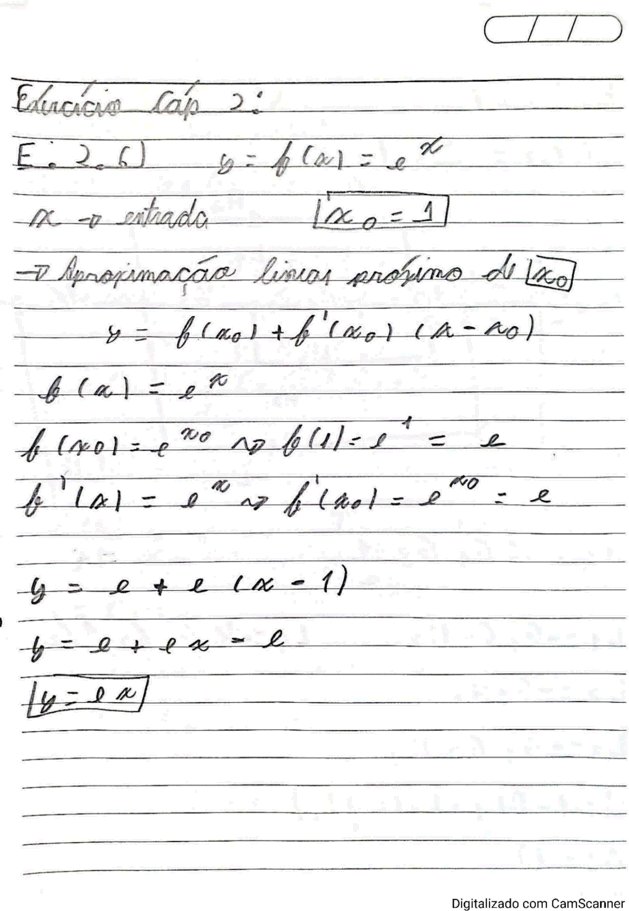 Exercício Cáp 2:
E: 2.6) y = f(x) = e^x
x → entrada x₀ = 1
→ Aproximação linear próximo de x₀
y = f(x₀) + f'(x₀) (x - x₀)
f(x) = e^x
f(x₀) = e^x₀ ⇝ f(1) = e^1 = e
f'(x) = e^x ⇝ f'(x₀) = e^x₀ = e
y = e + e (x - 1)
y = e + ex - e
y = ex
Digitalizado com CamScanner